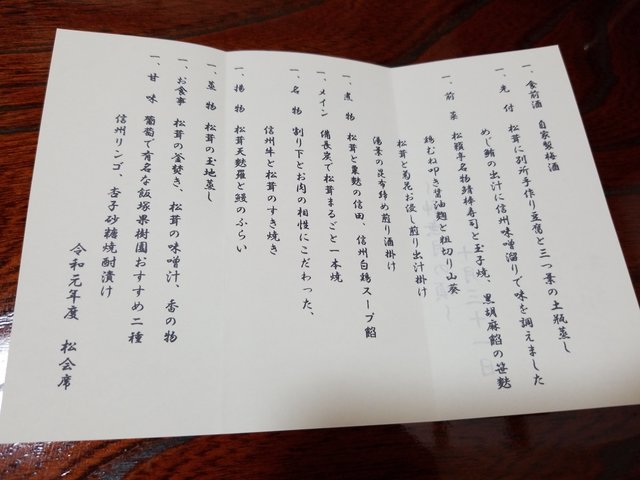 一、食前酒　自家製梅酒
一、先　付　松茸に別所手作り豆腐と三つ葉の土瓶蒸し
めじ鮪の出汁に信州味噌溜りで味を調えました
一、前　菜　松籟亭名物鯖棒寿司と玉子焼、黒胡麻餡の笹麩
鶏むね叩き醤油麹と粗切り山葵
松茸と菊花お浸し煎り出汁掛け
湯葉の昆布締め煎り酒掛け
一、煮　物　松茸と粟麩の信田、信州白鶏スープ餡
一、メイン　備長炭で松茸まるごと一本焼
一、名　物　割り下とお肉の相性にこだわった、
信州牛と松茸のすき焼き
一、揚　物　松茸天麩羅と鰻のふらい
一、蒸　物　松茸の玉地蒸し
一、お食事　松茸の釜焚き、松茸の味噌汁、香の物
一、甘　味　葡萄で有名な飯塚果樹園おすすめ二種
信州リンゴ、杏子砂糖焼酎漬け
令和元年度　松会席